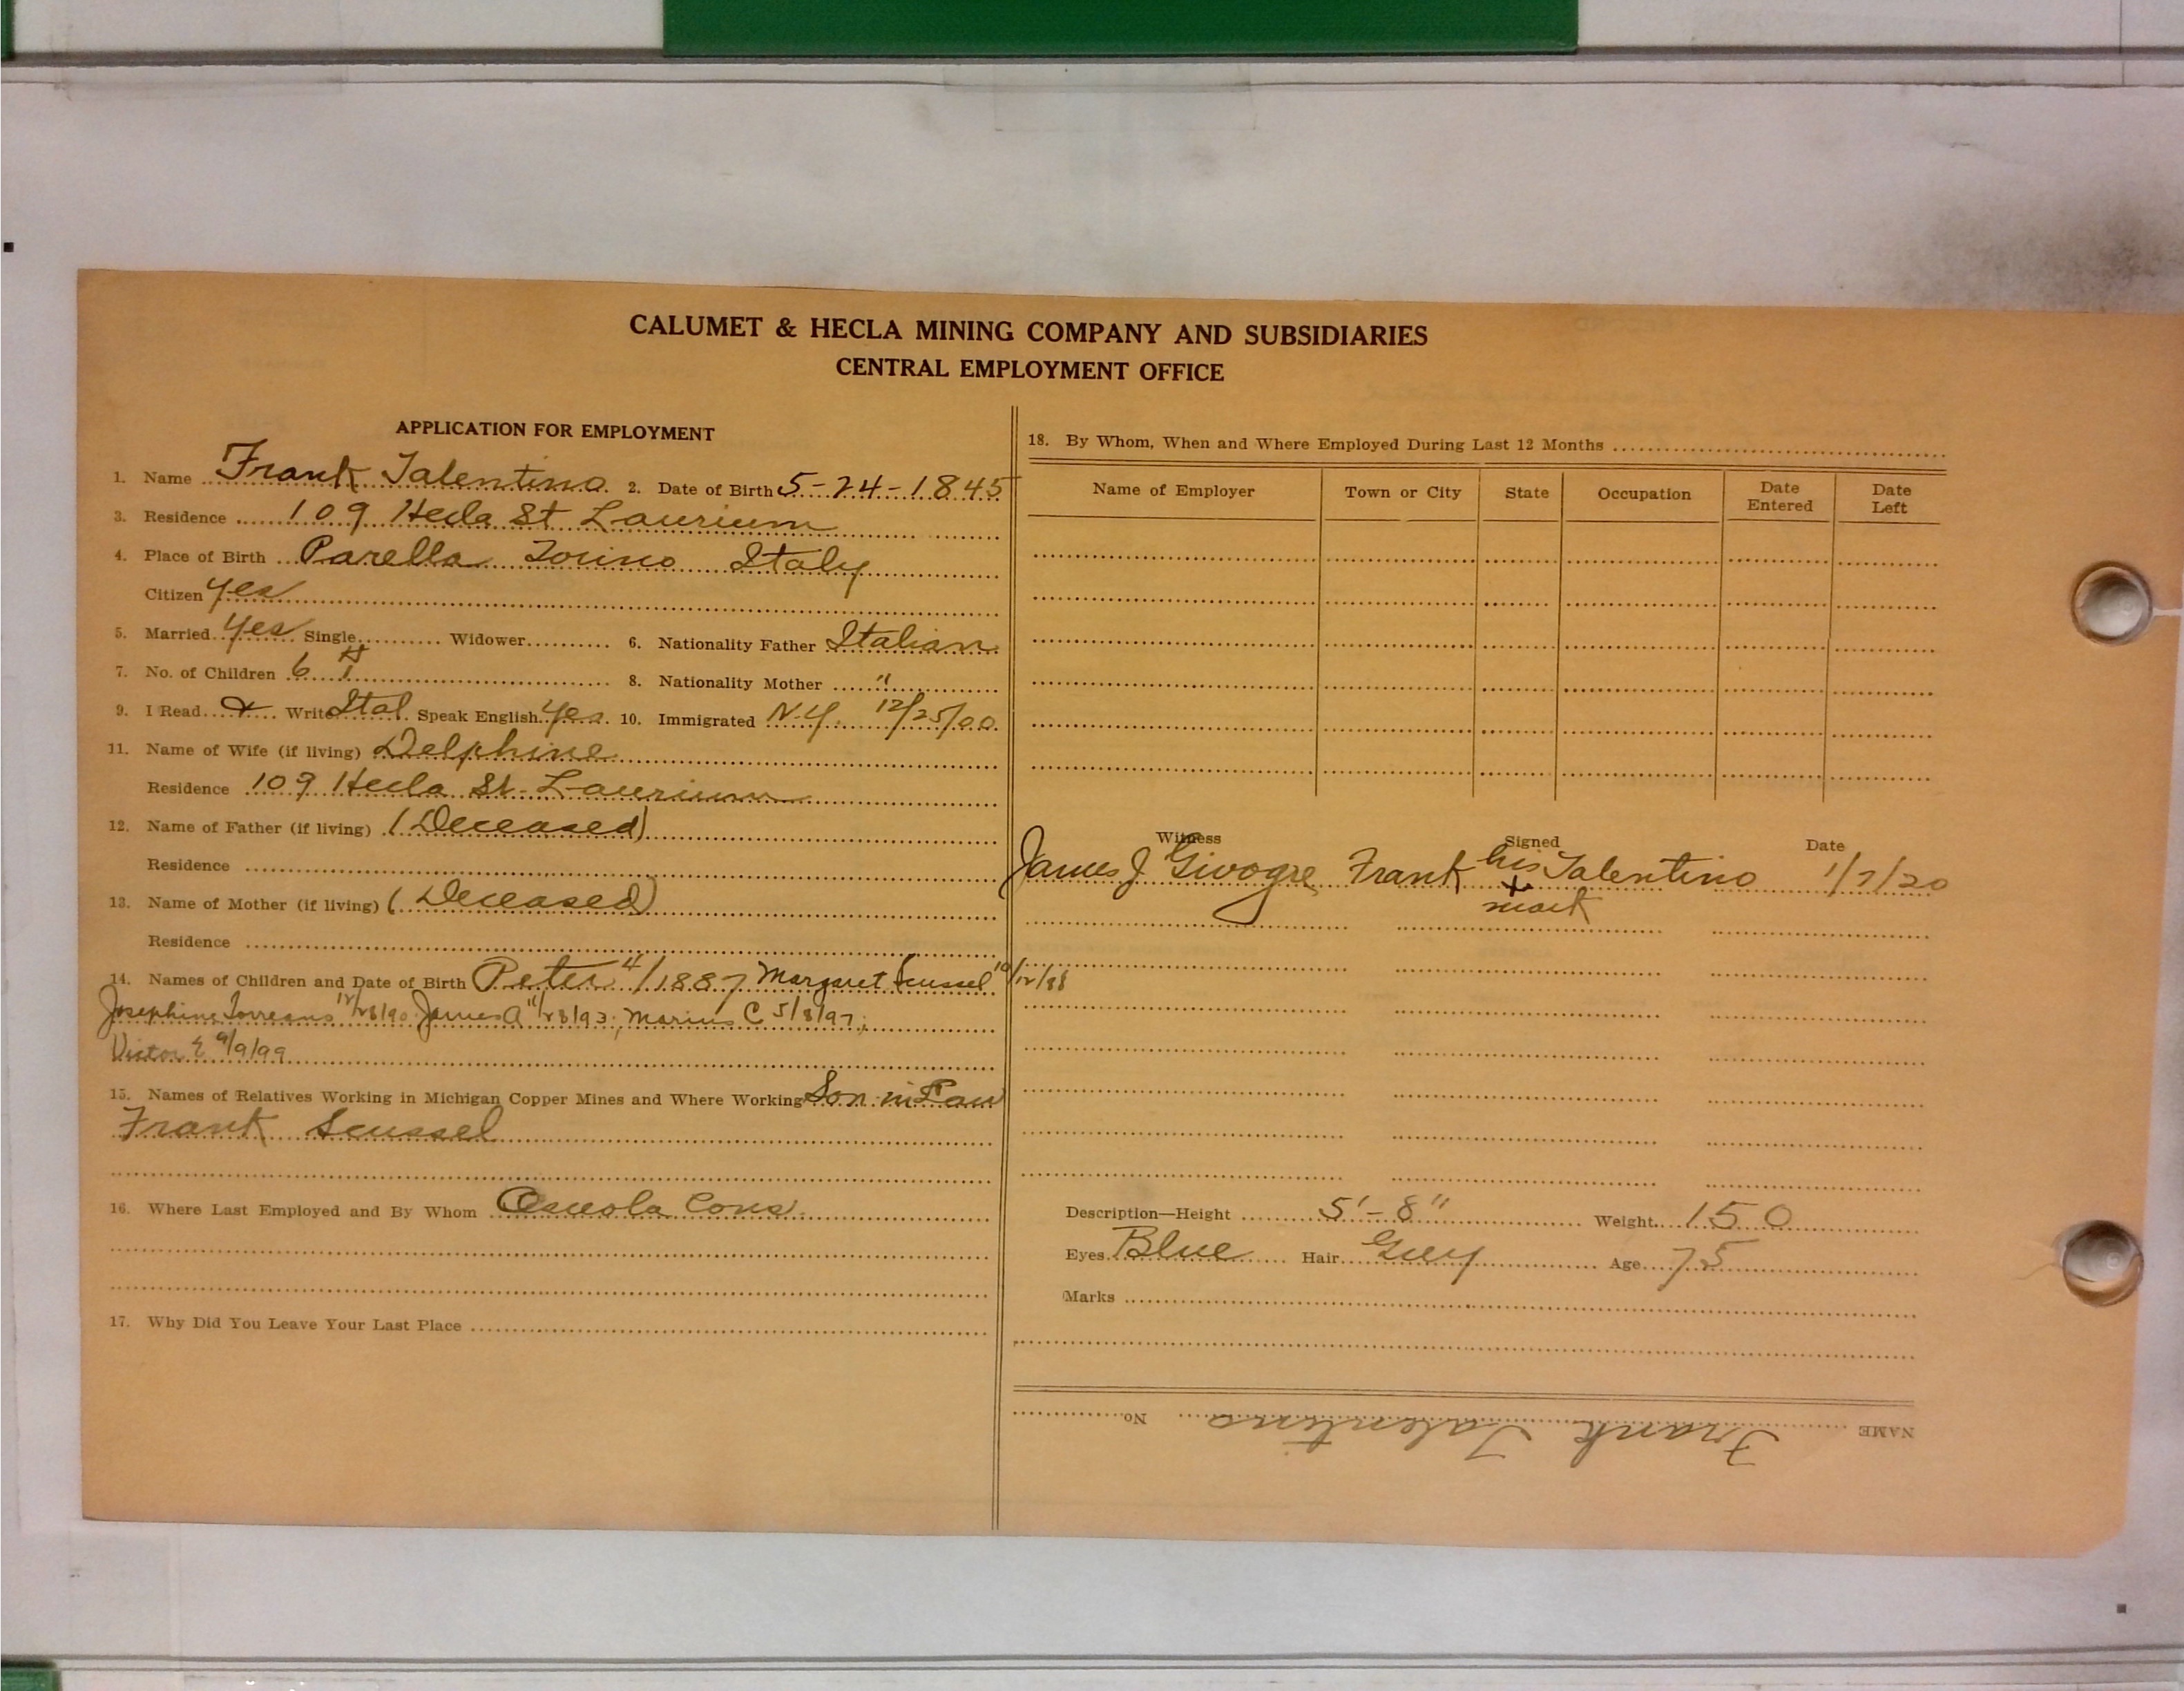 CALUMET & HECLA MINING COMPANY AND SUBSIDIARIES
CENTRAL EMPLOYMENT OFFICE
APPLICATION FOR EMPLOYMENT
1. Name Frank Talentino 2. Date of Birth 5-24-1845
3. Residence 109 Hecla St Laurium
4. Place of Birth Parella Torino Italy
Citizen yes
5. Married yes Single Widower 6. Nationality Father Italian
7. No. of Children 6 8. Nationality Mother "
9. I Read & Write Ital Speak English yes 10. Immigrated N.Y. 12/25/00
11. Name of Wife (if living) Delphine
Residence 109 Hecla St. Laurium
12. Name of Father (if living) (Deceased)
Residence
13. Name of Mother (if living) (Deceased)
Residence
14. Names of Children and Date of Birth Peter 4/1887 Margaret Scussel 10/12/88
Josephine Torreano 12/28/90 James A 11/28/93; Marius C 5/8/97;
Victor E 9/9/99
15. Names of Relatives Working in Michigan Copper Mines and Where Working Son in Law
Frank Scussel
16. Where Last Employed and By Whom Osceola Cons.
17. Why Did You Leave Your Last Place
18. By Whom, When and Where Employed During Last 12 Months
Name of Employer Town or City State Occupation Date Entered Date Left
Witness Signed Date
James J Givogre Frank his x mark Talentino 1/7/20
Description—Height 5'-8" Weight 150
Eyes Blue Hair Grey Age 75
Marks
NAME Frank Talentino No.